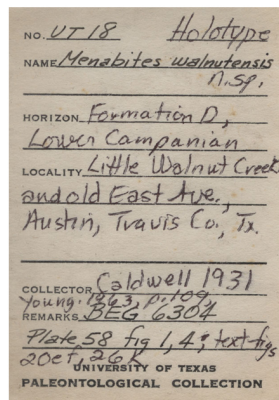 NO. UT 18 Holotype
NAME Menabites walnutensis
n.sp.
HORIZON Formation D,
Lower Campanian
LOCALITY Little Walnut Creek
and old East Ave.,
Austin, Travis Co., Tx.
COLLECTOR Caldwell 1931
Young. 1963, p.109,
REMARKS BEG 6304
Plate 58 fig 1, 4; text-figs
20ef, 26k
UNIVERSITY OF TEXAS
PALEONTOLOGICAL COLLECTION